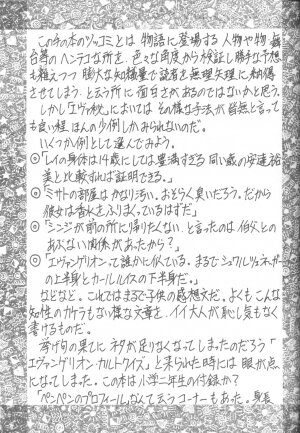 この手の本のツッコミとは 物語に登場する 人物や物、舞
台等のヘンテコな所を、色々な角度から検証し勝手な予想
も雑えつつ 膨大な知識量で読者を無理矢理に納得
させてしまう、と云う所に面白さがあるのではないかと思う。
しかし「エヴァ秋」においては その様な手法が皆無と言って
も良い程、ほんの少例しかみられないのだ。
いくつか例として選んでみよう。
◎「レイの身体は14歳にしては豊満すぎる 同い歳の安達裕
美と比較すれば証明できる。」
◎「ミサトの部屋はかなり汚い。おそらく臭いだろう。だから
彼女は香水をふりまくっているはずだ」
◎「シンジが前の所に帰りたくない、と言ったのは伯父との
あぶない関係があったから?」
◎「エヴァンゲリオンって誰かに似ている。まるでシュワルツェネッガー
の上半身とカール・ルイスの下半身だ。」
などなど。これではまるで子供の感想文だ。よくもこんな
知性のカケラもない様な文章を、イイ大人が恥し気もなく
書けるものだ。
挙げ句の果てにネタが足りなくなってしまったのだろう
「エヴァンゲリオン・カルトクイズ」と来られた時には眼が点
になってしまた。この本は小学二年生の付録か?
「ペンペンのプロフィール」なんて云うコーナーもあった。身長